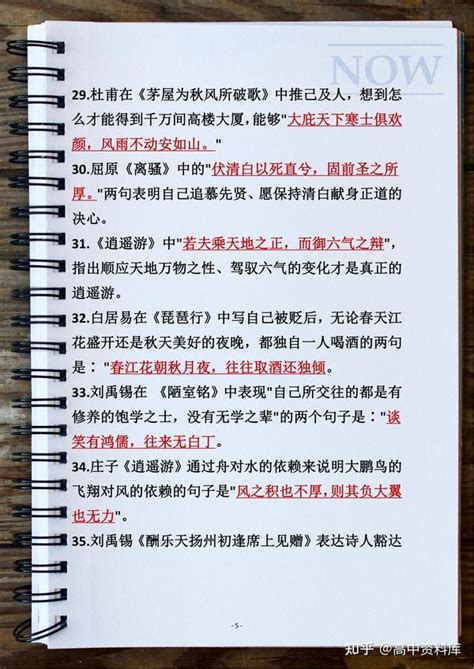 NOW
29.杜甫在《茅屋为秋风所破歌》中推己及人，想到怎
么才能得到千万间高楼大厦，能够"大庇天下寒士俱欢
颜，风雨不动安如山。"
30.屈原《离骚》中的"伏清白以死直兮，固前圣之所
厚。"两句表明自己追慕先贤、愿保持清白献身正道的
决心。
31.《逍遥游》中"若夫乘天地之正，而御六气之辩"，
指出顺应天地万物之性、驾驭六气的变化才是真正的
逍遥游。
32.白居易在《琵琶行》中写自己被贬后，无论春天江
花盛开还是秋天美好的夜晚，都独自一人喝酒的两句
是："春江花朝秋月夜，往往取酒还独倾。
33.刘禹锡在 《陋室铭》中表现"自己所交往的都是有
修养的饱学之士，没有无学之辈"的两个句子是："谈
笑有鸿儒，往来无白丁。
34.庄子《逍遥游》通过舟对水的依赖来说明大鹏鸟的
飞翔对风的依赖的句子是"风之积也不厚，则其负大翼
也无力"。
35.刘禹锡《酬乐天扬州初逢席上见赠》表达诗人豁达
- 5 -
知乎 @高中资料库